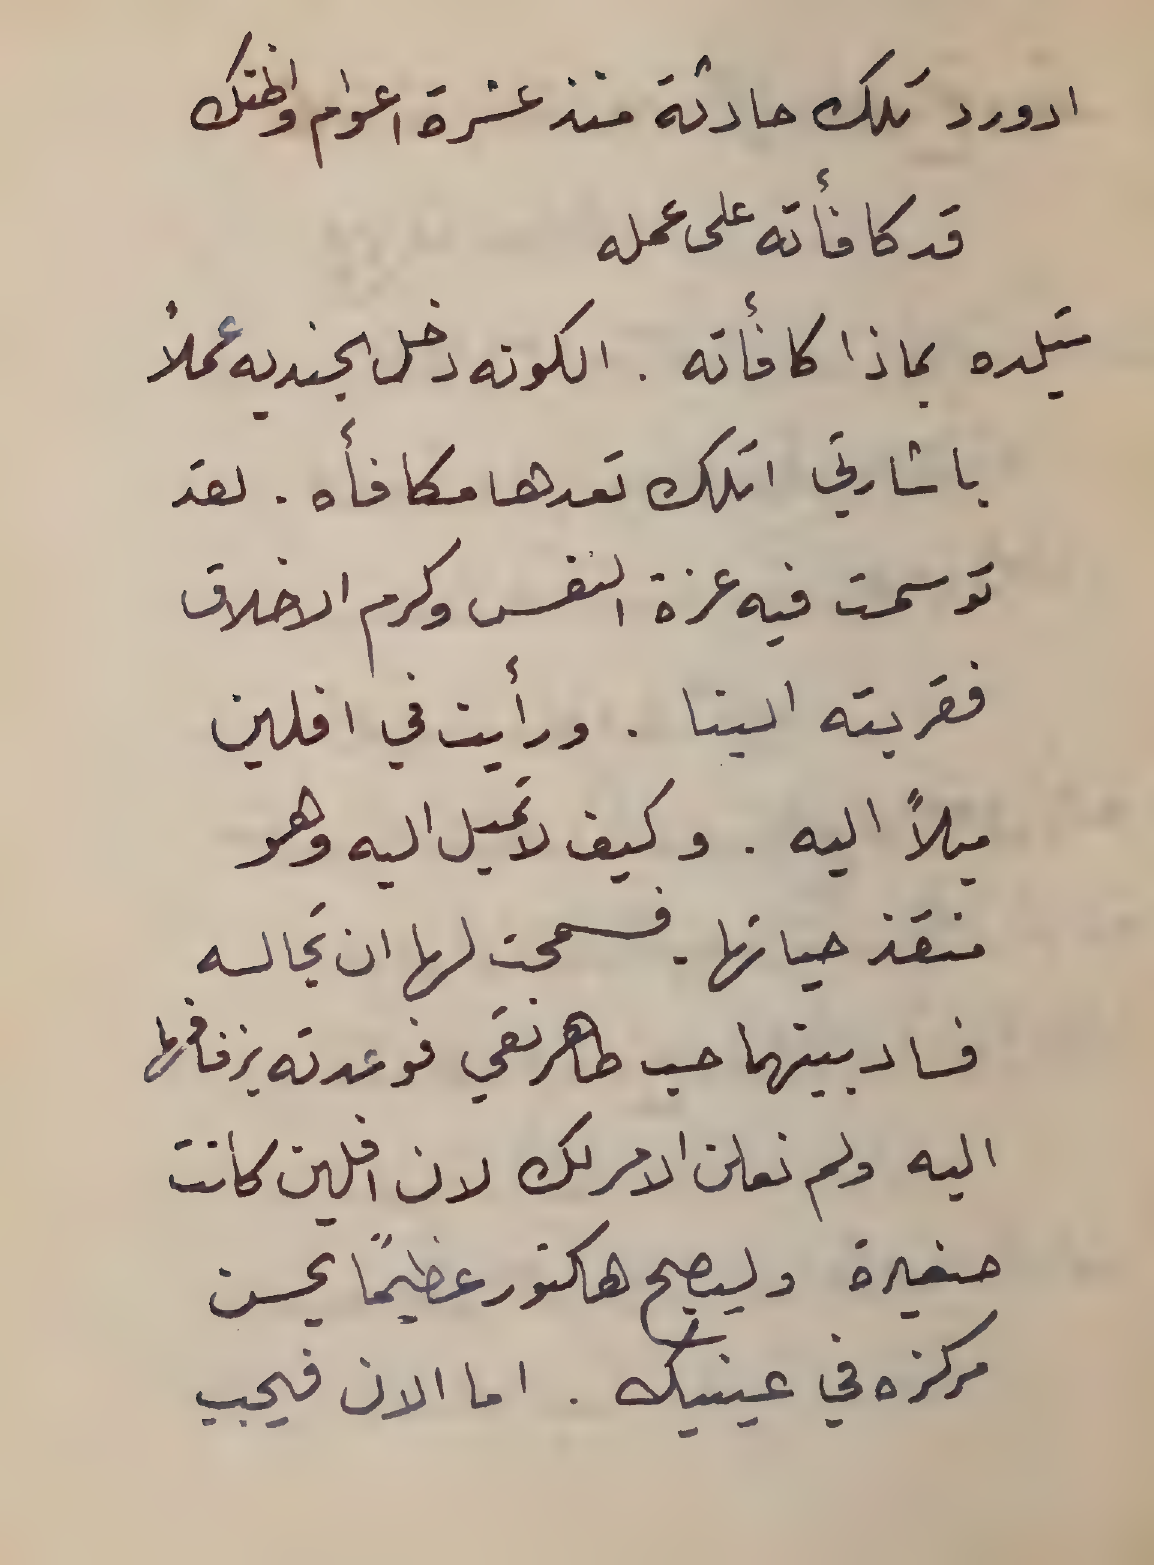 ادورد تلك حادثة منذ عشرة اعوام واظنك
قد كافأته على عمله
متيلده بماذا كافأته . الكونه دخل الجنديه عملاً
باشارتي اتلك تعدها مكافأه . لقد
توسمت فيه عزة النفس وكرم الاخلاق
فقربته الينا . ورأيت في افلين
ميلاً اليه . وكيف لا تميل اليه وهو
منقذ حياتها . فسمحت لها ان تجالسه
فساد بينهما حب طاهر نقي فوعدته بزفافها
اليه ولم نعلن الامر لك لان افلين كانت
صغيرة وليصبح هاكتور عظيماً يحسن
مركزه في عينيك . اما الان فيجب